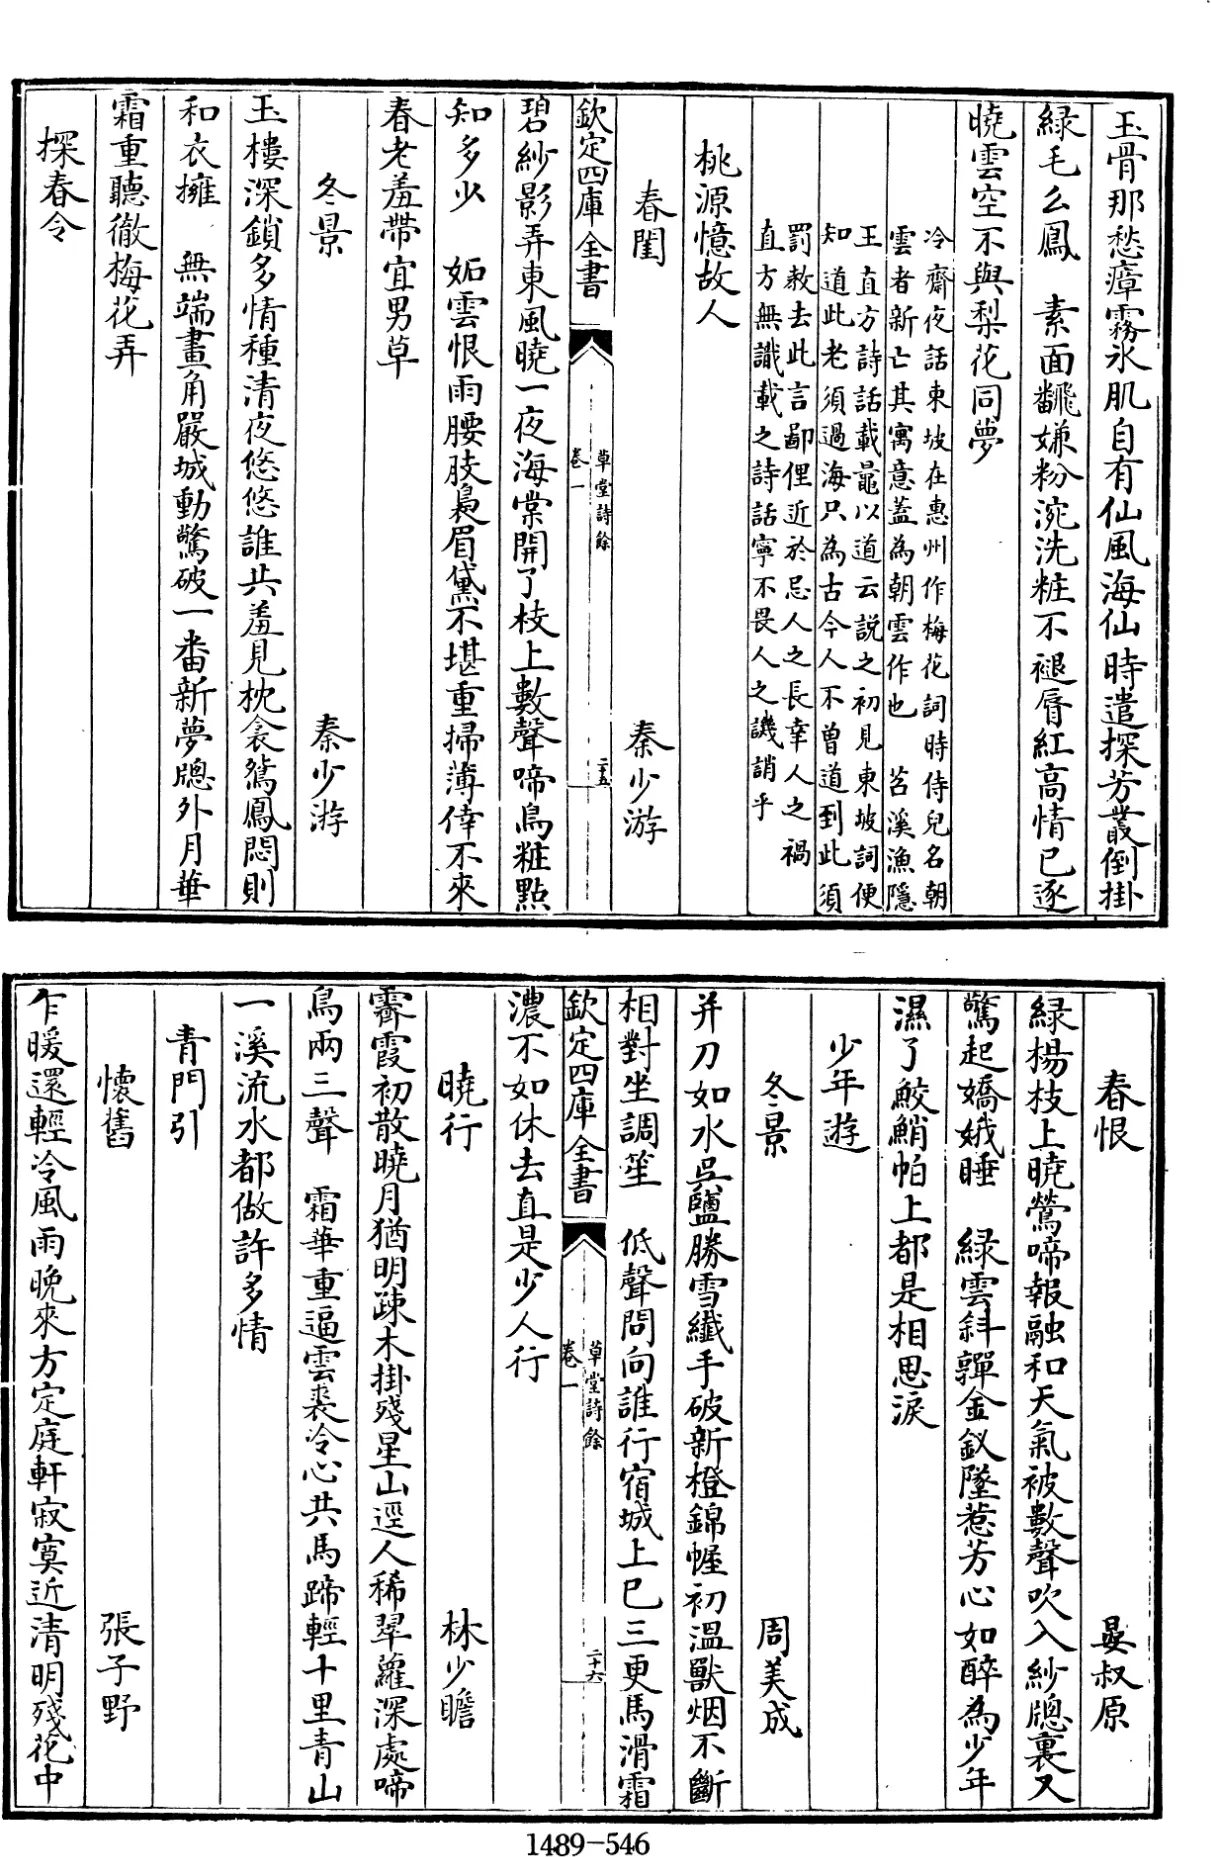 玉骨那愁瘴霧氷肌自有仙風海仙時遣探芳叢倒掛
緑毛么鳳　素面飜嫌粉涴洗粧不褪脣紅高情已逐
曉雲空不與梨花同夢
冷齋夜話東坡在惠州作梅花詞時侍兒名朝
雲者新亡其寓意葢為朝雲作也　苕溪漁隠
王直方詩話載鼂以道云説之初見東坡詞便
知道此老須過海只為古今人不曾道到此須
罰教去此言鄙俚近於忌人之長幸人之禍
直方無識載之詩話寧不畏人之譏誚乎
桃源憶故人
春閨　秦少游
欽定四庫全書
草堂詩餘
卷一
二十五
碧紗影弄東風曉一夜海棠開了枝上數聲啼鳥粧點
知多少　妬雲恨雨腰肢裊眉黛不堪重掃薄倖不來
春老羞帶宜男草
冬景　秦少游
玉樓深鎖多情種清夜悠悠誰共羞見枕衾鴛鳳悶則
和衣擁　無端畫角嚴城動驚破一番新夢牕外月華
霜重聽徹梅花弄
探春令
春恨　晏叔原
緑楊枝上曉鶯啼報融和天氣被數聲吹入紗牕裏又
驚起嬌娥睡　緑雲斜嚲金釵墜惹芳心如醉為少年
濕了鮫鮹帕上都是相思淚
少年遊
冬景　周美成
并刀如水吳鹽勝雪纎手破新橙錦幄初温獸烟不斷
相對坐調笙　低聲問向誰行宿城上已三更馬滑霜
欽定四庫全書
草堂詩餘
卷一
二十六
濃不如休去直是少人行
曉行　林少瞻
霽霞初散曉月猶明疎木掛殘星山逕人稀翠蘿深處啼
鳥兩三聲　霜華重逼雲裘冷心共馬蹄輕十里青山
一溪流水都做許多情
青門引
懷舊　張子野
乍暖還輕冷風雨晚來方定庭軒寂寞近清明殘花中
1489-546